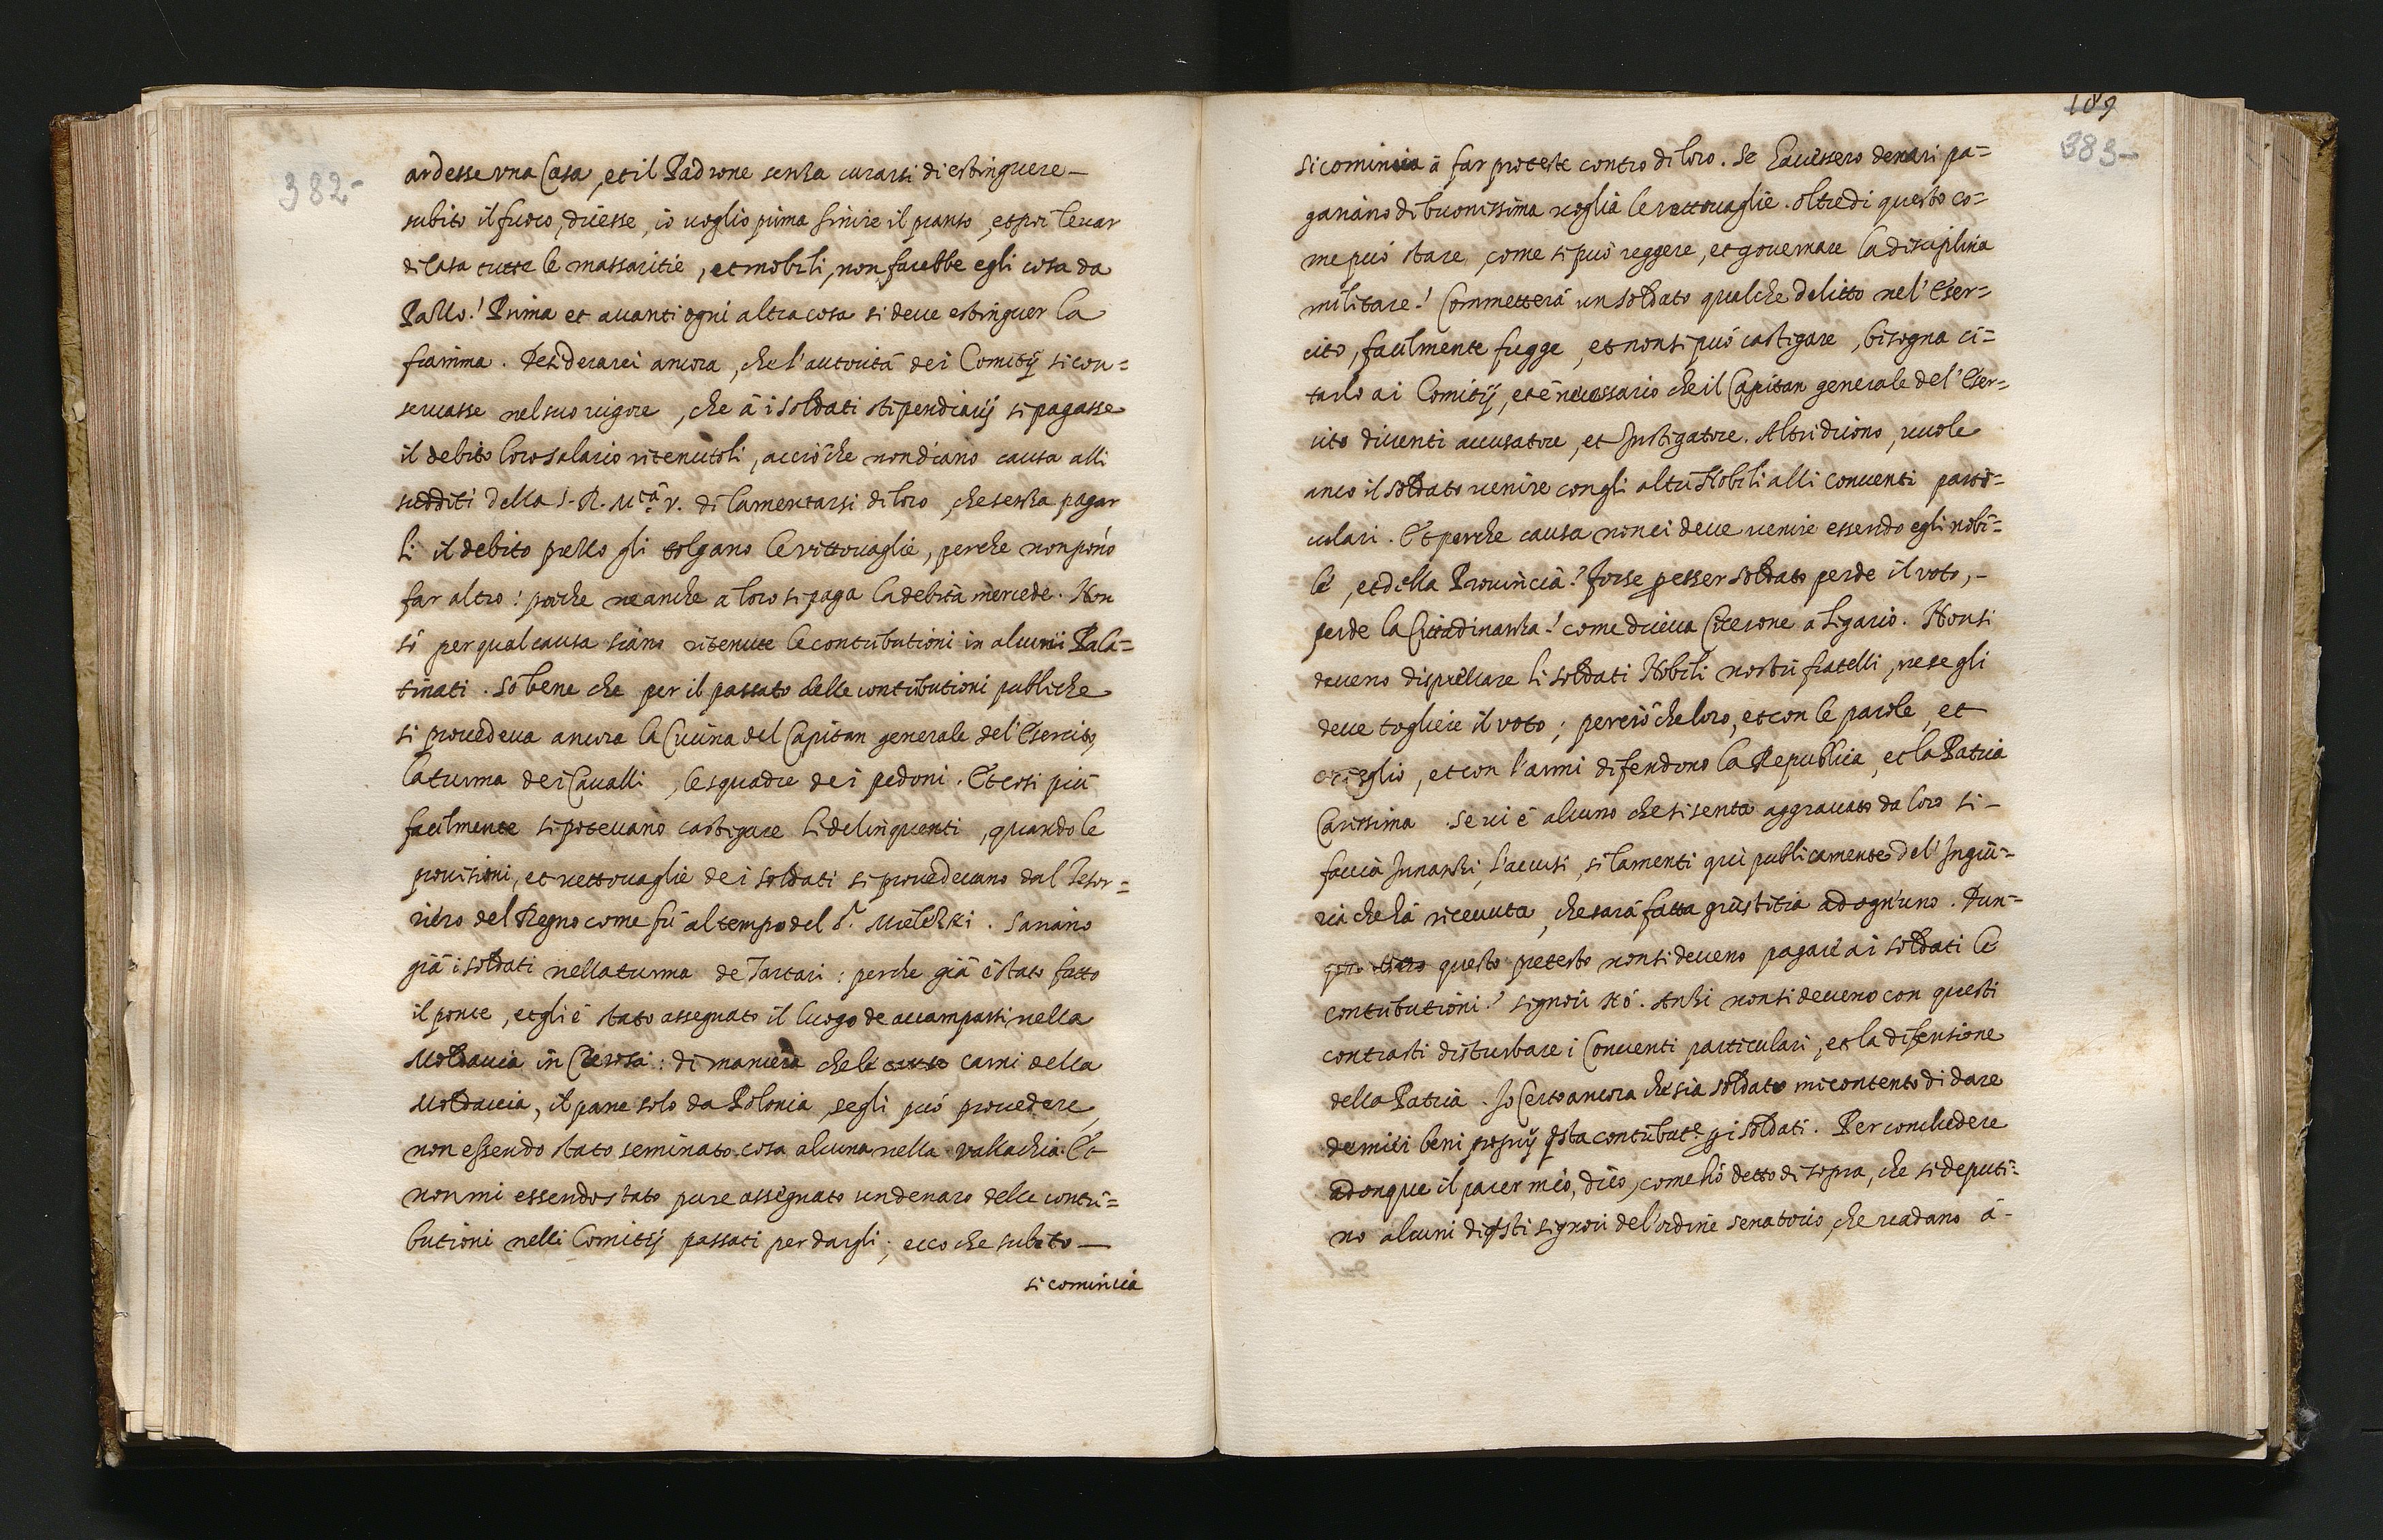 382-
ardesse vna Casa, et il Padrone senza curarsi di estinguere-
subito il fuoco, dicesse, io uoglio prima finire il pianto, et poi leuar
di Casa tutte le massaritie, et mobili, non farebbe egli cosa da
Pazzo! Prima et auanti ogni altra cosa si deue estinguer la
fiamma. Desiderarei ancora, che l'autorità dei Comitij si con=
seruasse nel suo uigore, che à i soldati stipendiarij si pagasse
il debito loro salario ritenutoli, acciò che non diano causa alli
sudditi della S. R. M.cà V. di lamentarsi di loro, che senza pagar
li il debito prezzo gli tolgano le vittouaglie, perche non pono
far altro! poiche ne anche a loro si paga la debita mercede. Non
sò per qual causa siano ritenute le contributioni in alcuni Pala=
tinati. So bene che per il passato delle contributioni publiche
si prouedeua ancora la Cucina del Capitan generale del'Esercito,
la turma dei Caualli, le squadre dei pedoni. Et cosi più
facilmente si poteuano castigare li delinquenti, quando le
prouisioni, et uettouaglie dei soldati si prouedeuano dal Tesor=
riero del Regno come fù al tempo del S.r Mielezki. Sariano
già i soldati nella turma de Tartari: perche già è stato fatto
il ponte, et gli è stato assegnato il luogo de accamparsi nella
Moldauia in : di maniera che le carni della
Moldauia, il pane solo da Polonia, se gli può prouedere,
non essendo stato seminato cosa alcuna nella Vallachia. Et
non mi essendo stato pure assignato un denaro delle contri=
butioni nelli Comitij passati per dargli; ecco che subito-
si comincia
189
383-
si comincia à far proteste contro di loro. Se hauessero denari pa=
gariano di buonissima uoglia le uettouaglie. oltre di questo co=
me può stare, come si può reggere, et gouernare la disciplina
militare! Commetterà un soldato qualche delitto nel'Eser=
cito, facilmente fugge, et non si può castigare, bisogna ci=
tarlo ai Comitij, et è necessario che il Capitan generale del'Eser=
cito diuenti accusatore, et Instigatore. Altri dicono, uuole
anco il soldato uenire con gli altri Nobili alli conuenti parti=
culari. Et perche causa non ci deue uenire essendo egli nobi=
le, et della Prouincia! forse p esser soldato perde il voto,-
perde la Cittadinanza! come diceua Cicerone a Ligario. Non si
deueno disprezzare li soldati Nobili nostri fratelli, ne se gli
deue togliere il voto; perciò che loro, et con le parole, et
, et con l'armi difendono la Republica, et la Patria
Carissima. Se ui è alcuno che si senta aggrauato da loro si-
faccia Innanzi, l'accusi, si lamenti qui publicamente del'Ingiu=
ria che hà riceuuta, che sarà fatta giustitia ad ogn'uno. Dun=
questo pretesto non si deueno pagare ai soldati le
contributioni! signori nò. Anzi non si deueno con questi
contrasti disturbare i Conuenti particulari, et la difensione
della Patria. Io Certo ancora che sia soldato mi contento di dare
de miei beni proprij qsta contributne p i soldati. Per concludere
adonque il parer mio, dico, come hò detto di sopra, che si deputi=
no alcuni di qsti signori del'ordine senatorio, che uadano à-